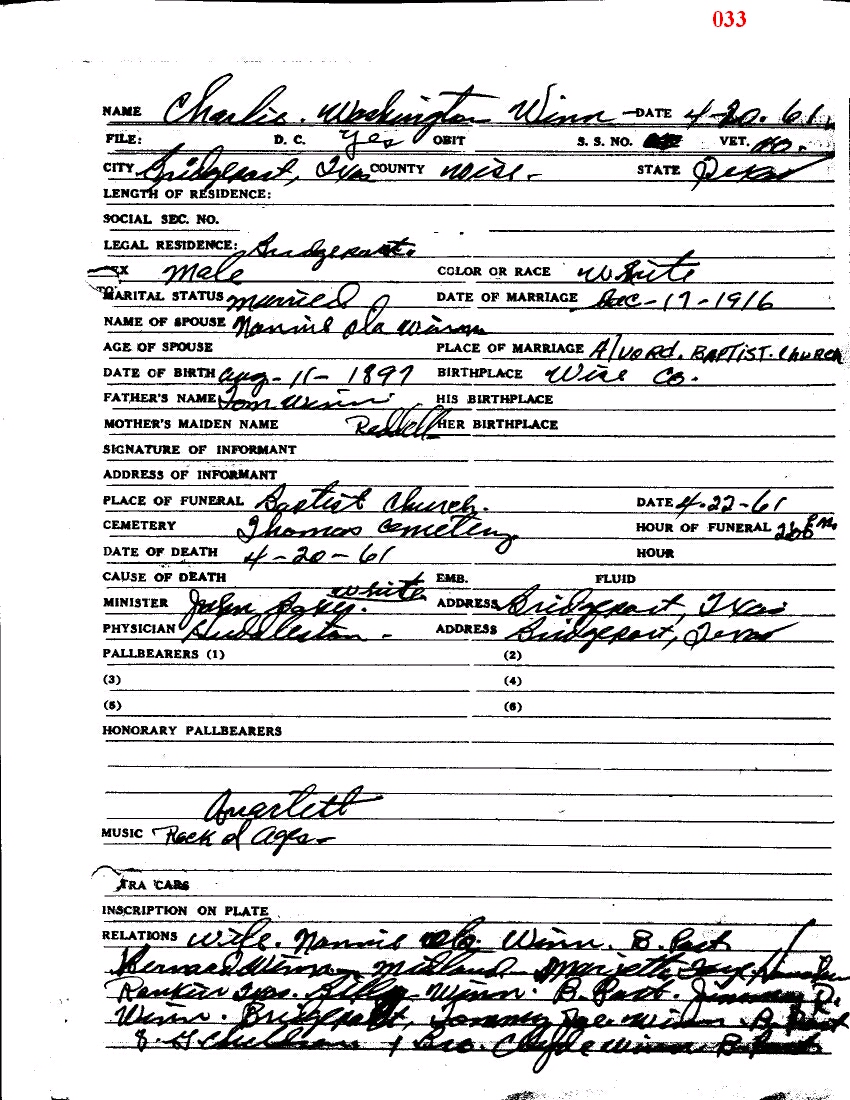 033
NAME Charlie. Washington Winn - DATE 4-20.61.
FILE: D. C. yes OBIT S. S. NO. VET. no.
CITY Bridgeport, Texas COUNTY Wise - STATE Texas
LENGTH OF RESIDENCE:
SOCIAL SEC. NO.
LEGAL RESIDENCE: Bridgeport.
EX Male COLOR OR RACE White
MARITAL STATUS married DATE OF MARRIAGE Dec-17-1916
NAME OF SPOUSE Nannie Ola Winn
AGE OF SPOUSE PLACE OF MARRIAGE Alvord. BAPTIST. Church
DATE OF BIRTH Aug-11-1897 BIRTHPLACE Wise Co.
FATHER'S NAME Tom Winn HIS BIRTHPLACE
MOTHER'S MAIDEN NAME HER BIRTHPLACE
SIGNATURE OF INFORMANT
ADDRESS OF INFORMANT
PLACE OF FUNERAL Baptist Church. DATE 4-22-61
CEMETERY Thomas Cemetery HOUR OF FUNERAL PM.
DATE OF DEATH 4-20-61 HOUR
CAUSE OF DEATH EMB. FLUID
White
MINISTER John ADDRESS Bridgeport, Texas
PHYSICIAN Huddleston - ADDRESS Bridgeport, Texas
PALLBEARERS (1) (2)
(3) (4)
(5) (6)
HONORARY PALLBEARERS
Quartett
MUSIC Rock of Ages-
TRA CARS
INSCRIPTION ON PLATE
RELATIONS Wife. Nannie Ola. Winn. B. Port
Bernard Winn Midland
Rankin Texas. Winn. B. Port. Jimmy D.
Winn. Bridgeport, Tommy Joe. Winn. B. Port
8. G Children 1 Bro. Clyde Winn B. Port